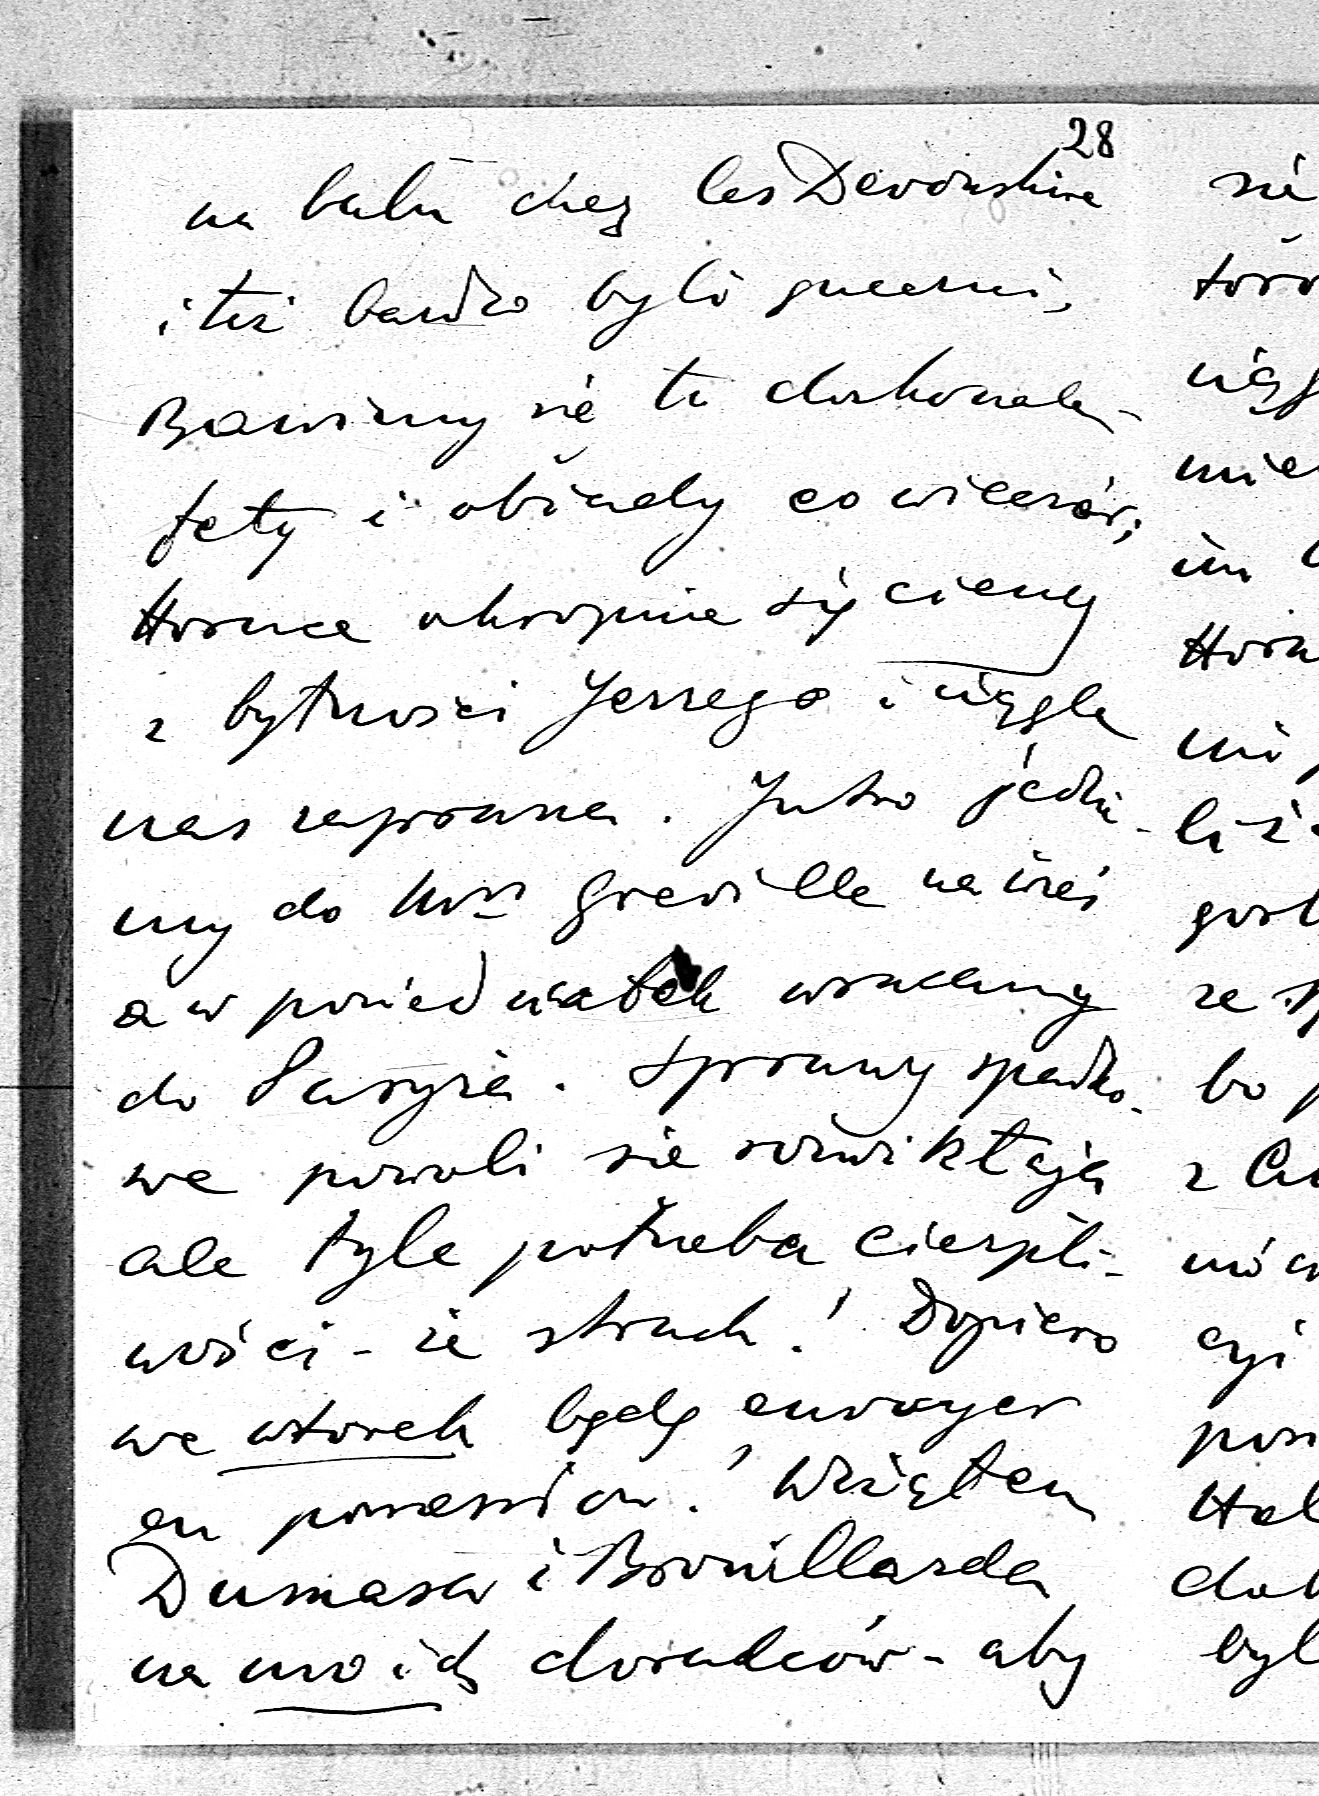 28
na balu chez les Devonshire
i też bardzo byli grzeczni,
Bawimy się tu doskonale -
fety i obiady co wieczór;
Horace okropnie się cieszy
z bytności Jerzego i ciągle
nas zaprasza. Jutro jedzie-
my do Mrs Greville na wieś
a w poniedziałek wracamy
do Paryża. Sprawy spadko-
we powoli się rozwikłają
ale tyle potrzeba cierpli-
wości - że strach! Dopiero
we wtorek będę envoyer
en possession! Wzięłam
Dumasa i Brouillarda
na moich doradców - aby
się